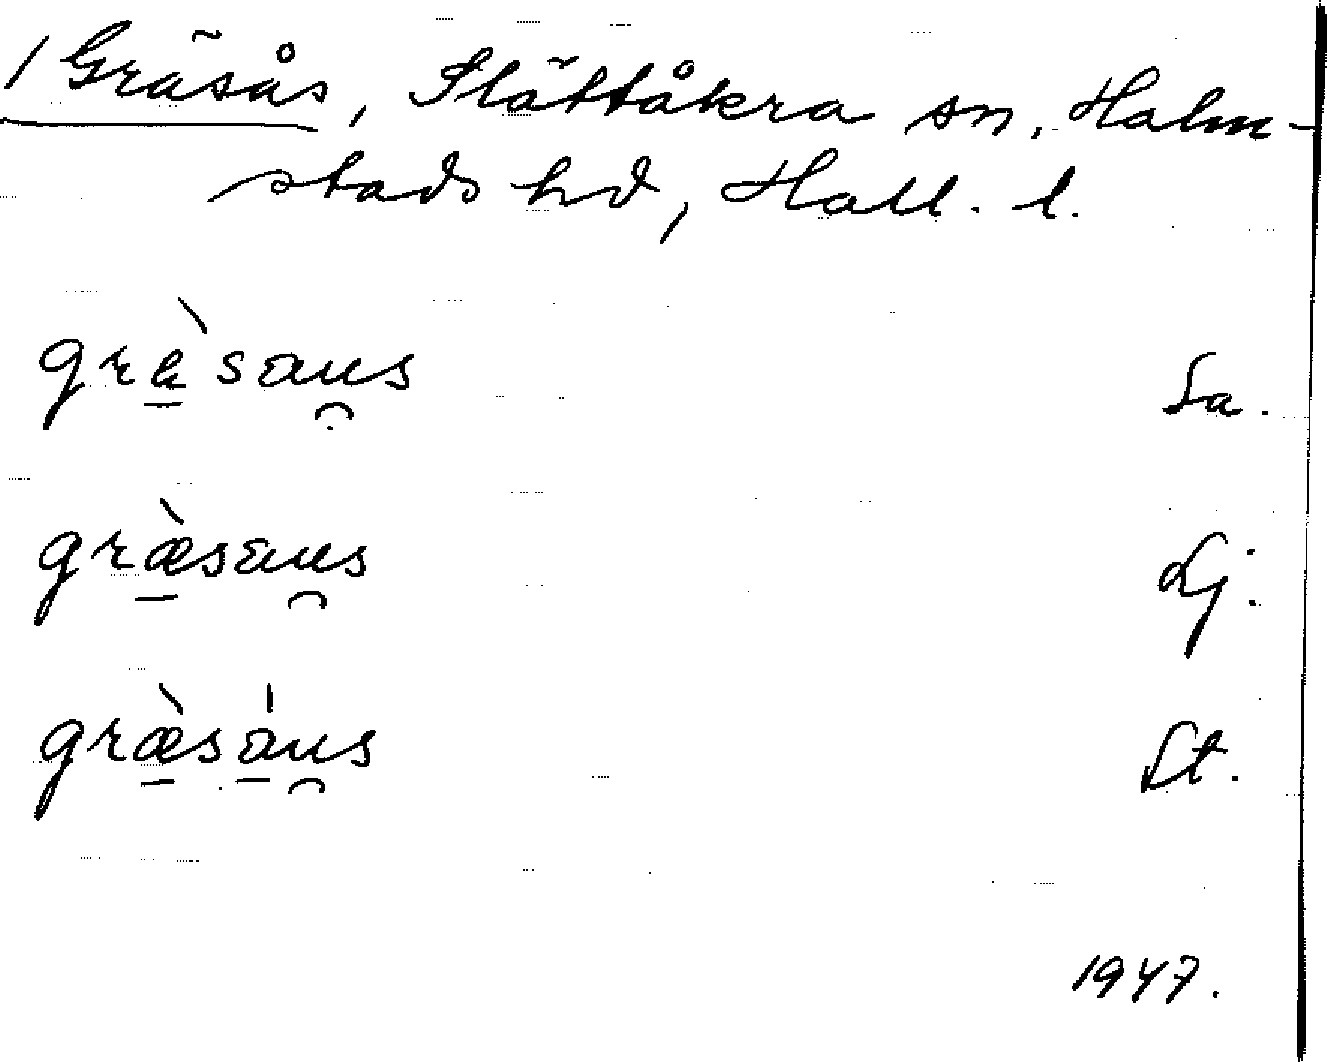 / Gräsås, Slättåkra sn, Halm-
stads hd, Hall. l.
græ̠̀sau̯s Sa.
græ̠̀sau̯s Lj.
græ̠̀sa̠̍u̯s St.
1947.